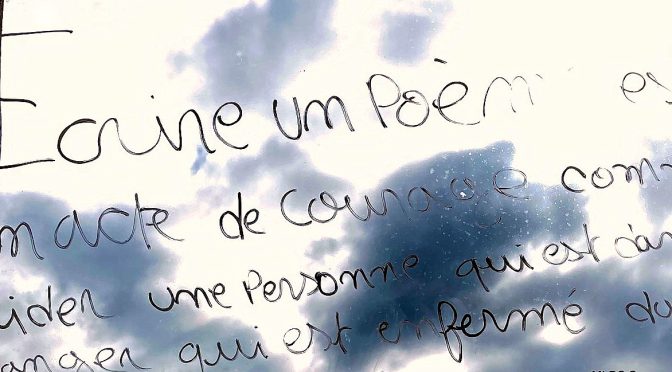 Ecrire un Poèm es
n acte de courage com
ider une personne qui est dan
anger qui est enfermé da